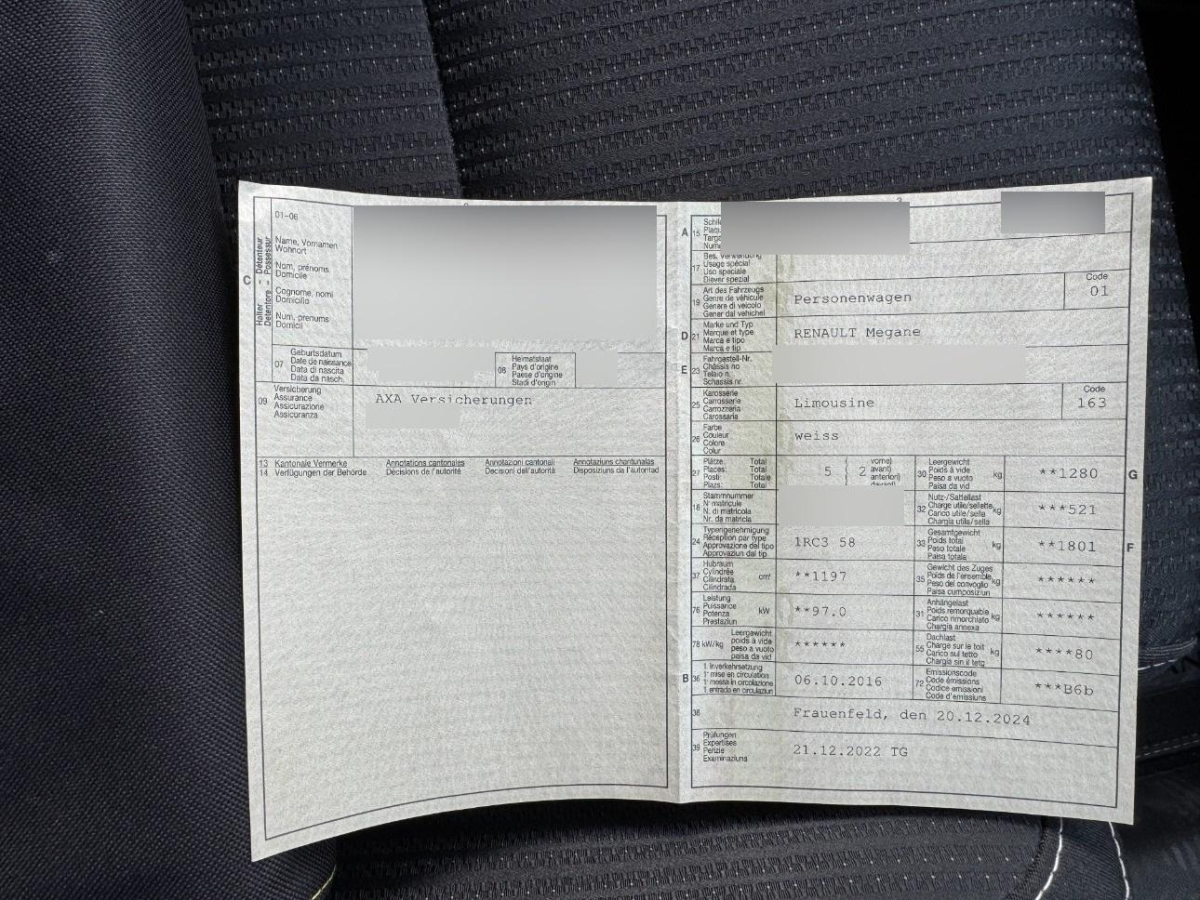 01-06
C
Halter - Détenteur
Detentore - Possessur
Name, Vornamen
Wohnort
Nom, prénoms
Domicile
Cognome, nomi
Domicilio
Num, prenums
Domicil
07
Geburtsdatum
Date de naissance
Data di nascita
Data da nasch.
08
Heimatstaat
Pays d'origine
Paese d'origine
Stadi d'origin
09
Versicherung
Assurance
Assicurazione
Assicuranza
AXA Versicherungen
13 Kantonale Vermerke
14 Verfügungen der Behörde
Annotations cantonales
Décisions de l'autorité
Annotazioni cantonali
Decisioni dell'autorità
Annotaziuns chantunalas
Disposiziuns da l'autoritad
A
15
17
Usage spécial
Uso speciale
Diever spezial
19
Art des Fahrzeugs
Genre de véhicule
Genere di veicolo
Gener dal vehichel
Personenwagen
Code
01
D
21
Marke und Typ
Marque et type
Marca e tipo
Marca e tip
RENAULT Megane
E
23
Fahrgestell-Nr.
Châssis no
Telaio n.
Schassis nr.
25
Karosserie
Carrosserie
Carrozzeria
Carossaria
Limousine
Code
163
26
Farbe
Couleur
Colore
Colur
weiss
27
Plätze: Total
Places: Total
Posti: Totale
Plazs: Total
5 ( 2
vorne)
avant)
anteriori)
30
Leergewicht
Poids à vide
Peso a vuoto
Paisa da vid
kg
**1280
G
18
Stammnummer
N° matricule
N. di matricola
Nr. da matricla
32
Nutz-/Sattellast
Charge utile/sellette
Carico utile/sella
Chargia utila/sella
kg
***521
24
Typengenehmigung
Réception par type
Approvazione del tipo
Approvaziun dal tip
1RC3 58
33
Gesamtgewicht
Poids total
Peso totale
Paisa totala
kg
**1801
F
37
Hubraum
Cylindrée
Cilindrata
Cilindrada
cm³
**1197
35
Gewicht des Zuges
Poids de l'ensemble
Peso del convoglio
Paisa cumposiziun
kg
******
76
Leistung
Puissance
Potenza
Prestaziun
kW
**97.0
31
Anhängelast
Poids remorquable
Carico rimorchiato
Chargia annexa
kg
******
78 kW/kg
Leergewicht
poids à vide
peso a vuoto
paisa da vid
******
55
Dachlast
Charge sur le toit
Carico sul tetto
Chargia sin il tetg
kg
****80
B
36
1. Inverkehrsetzung
1re mise en circulation
1a messa in circolazione
1. entrada en circulaziun
06.10.2016
72
Emissionscode
Code émissions
Codice emissioni
Code d'emissiuns
***B6b
38
Frauenfeld, den 20.12.2024
39
Prüfungen
Expertises
Perizie
Examinaziuns
21.12.2022 TG